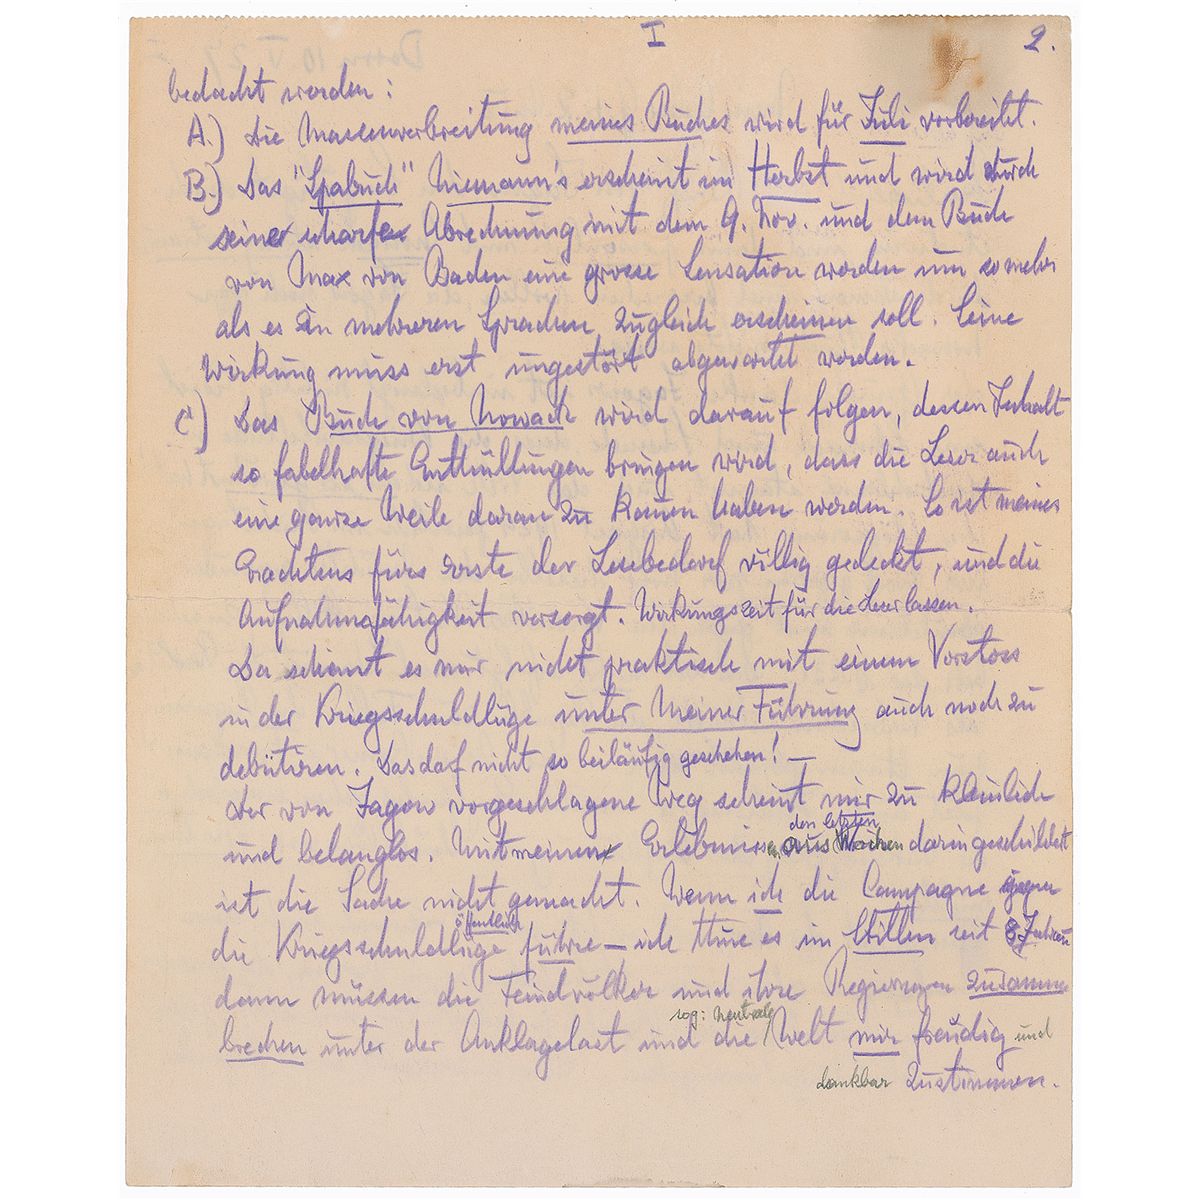 I 2.
bedacht werden:
A.) Die Massenverbreitung meines Buches wird für Juli vorbereitet.
B.) Das "Spabuch" Niemann's erscheint im Herbst und wird durch
seine scharfe Abrechnung mit dem 9. Nov. und dem Buch
von Max von Baden eine grosse Sensation werden um so mehr
als es in mehreren Sprachen zugleich erscheinen soll. Seine
Wirkung muss erst ungestört abgewartet werden.
C) Das Buch von Nowack wird darauf folgen, dessen Inhalt
so fabelhafte Enthüllungen bringen wird, dass die Leser auch
eine ganze Weile daran zu kauen haben werden. So ist meines
Erachtens fürs erste der Lesebedarf völlig gedeckt, und die
Aufnahmefähigkeit versorgt. Wirkungszeit für die Leser lassen.
Da scheint es mir nicht praktisch mit einem Vorstoss
in der Kriegsschuldlüge unter meiner Führung auch noch zu
debütiren. Das darf nicht so beiläufig geschehen! —
Der von Jagow vorgeschlagene Weg scheint mir zu kleinlich
und belanglos. Mit meinen Erlebnissen aus den letzten Wochen darin geschildert
ist die Sache nicht gemacht. Wenn ich die Campagne gegen
die Kriegsschuldlüge öffentlich führe — ich thue es im Stillen seit 8 Jahren
dann müssen die Feindvölker und ihre Regierungen zusammen
brechen unter der Anklagelast und die sog: neutrale Welt mir freudig und
dankbar zustimmen.